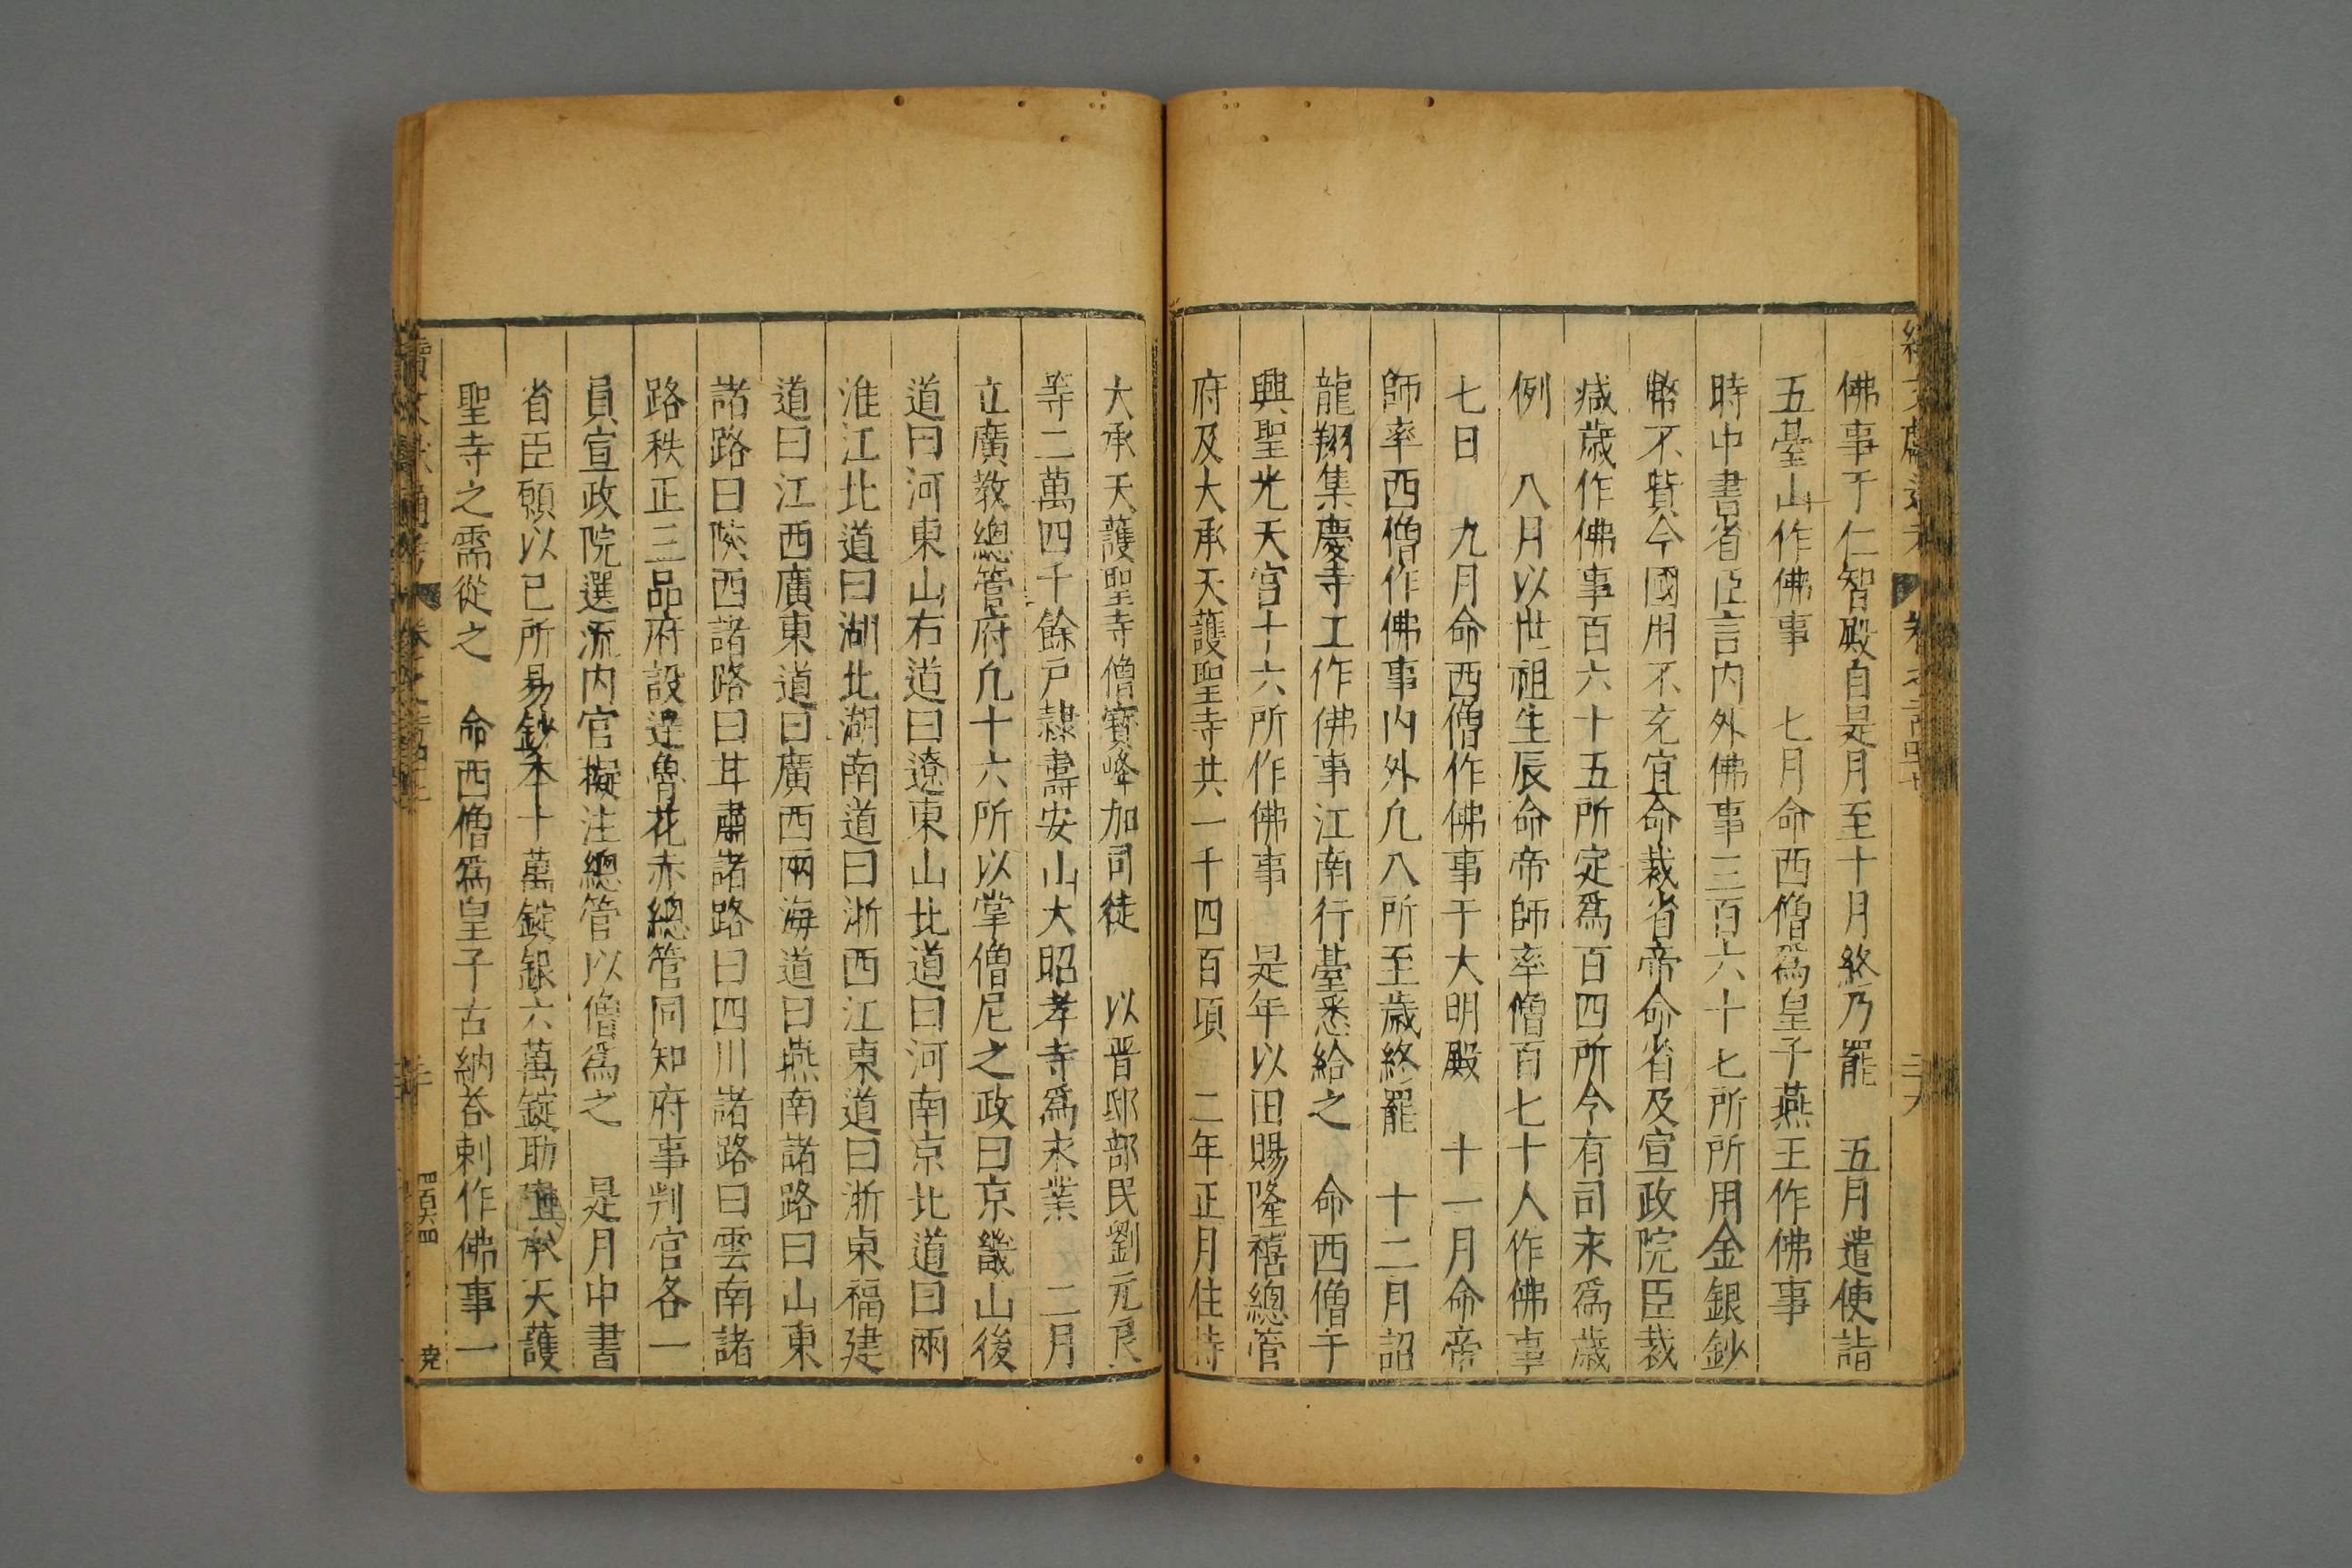 佛事于仁智殿自是月至十月終乃罷　五月遣使詣
五臺山作佛事　七月命西僧爲皇子燕王作佛事
時中書省臣言內外佛事三百六十七所所用金銀鈔
幣不貲今國用不充宜命裁省帝命省及宣政院臣裁
減歲作佛事百六十五所定爲百四所令有司永爲歲
例　八月以世祖生辰命帝師率僧百七十人作佛事
七日　九月命西僧作佛事于大明殿　十一月命帝
師率西僧作佛事內外凡八所至歲終罷　十二月詔
龍翔集慶寺工作佛事江南行臺悉給之　命西僧于
興聖光天宮十六所作佛事　是年以田賜隆禧總管
府及大承天護聖寺共一千四百頃　二年正月住持
大承天護聖寺僧寶峰加司徒　以晋邸部民劉元良
等二萬四千餘戸隸壽安山大昭孝寺爲永業　二月
立廣教總管府凢十六所以掌僧尼之政曰京畿山後
道曰河東山右道曰遼東山北道曰河南京北道曰兩
淮江北道曰湖北湖南道曰浙西江東道曰浙東福建
道曰江西廣東道曰廣西兩海道曰燕南諸路曰山東
諸路曰陝西諸路曰甘肅諸路曰四川諸路曰雲南諸
路秩正三品府設達魯花赤總管同知府事判官各一
員宣政院選流内官擬注總管以僧爲之　是月中書
省臣願以已所易鈔本十萬錠銀六萬錠助建承天護
聖寺之需從之　命西僧爲皇子古納荅剌作佛事一